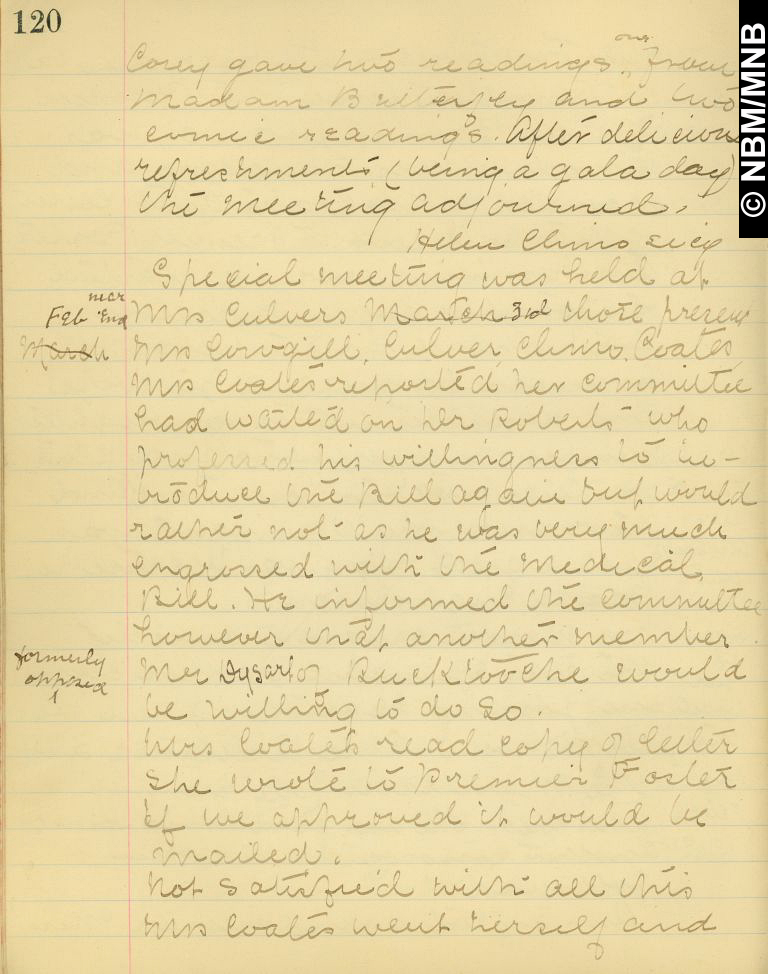 120
Corey gave two readings one from
Madam Butterfly and two
comic readings. After delicious
refreshments (being a gala day)
the meeting adjourned.
Helen Climo Secy
Special meeting was held at
near
Feb End
March
Mrs Culvers March 3rd those present
Mrs Cowgill, Culver, Climo, Coates,
Mrs Coates reported her committee
had waited on Mr Roberts who
professed his willingness to in-
troduce the Bill again but would
rather not as he was very much
engrossed with the Medical
Bill. He informed the committee
however that another member
formerly
opposed
Mr Dysart of Bucktooche would
be willing to do so.
Mrs Coates read copy of letter
she wrote to Premier Foster
if we approved it would be
mailed.
Not satisfied with all this
Mrs Coates went herself and
© NBM/MNB